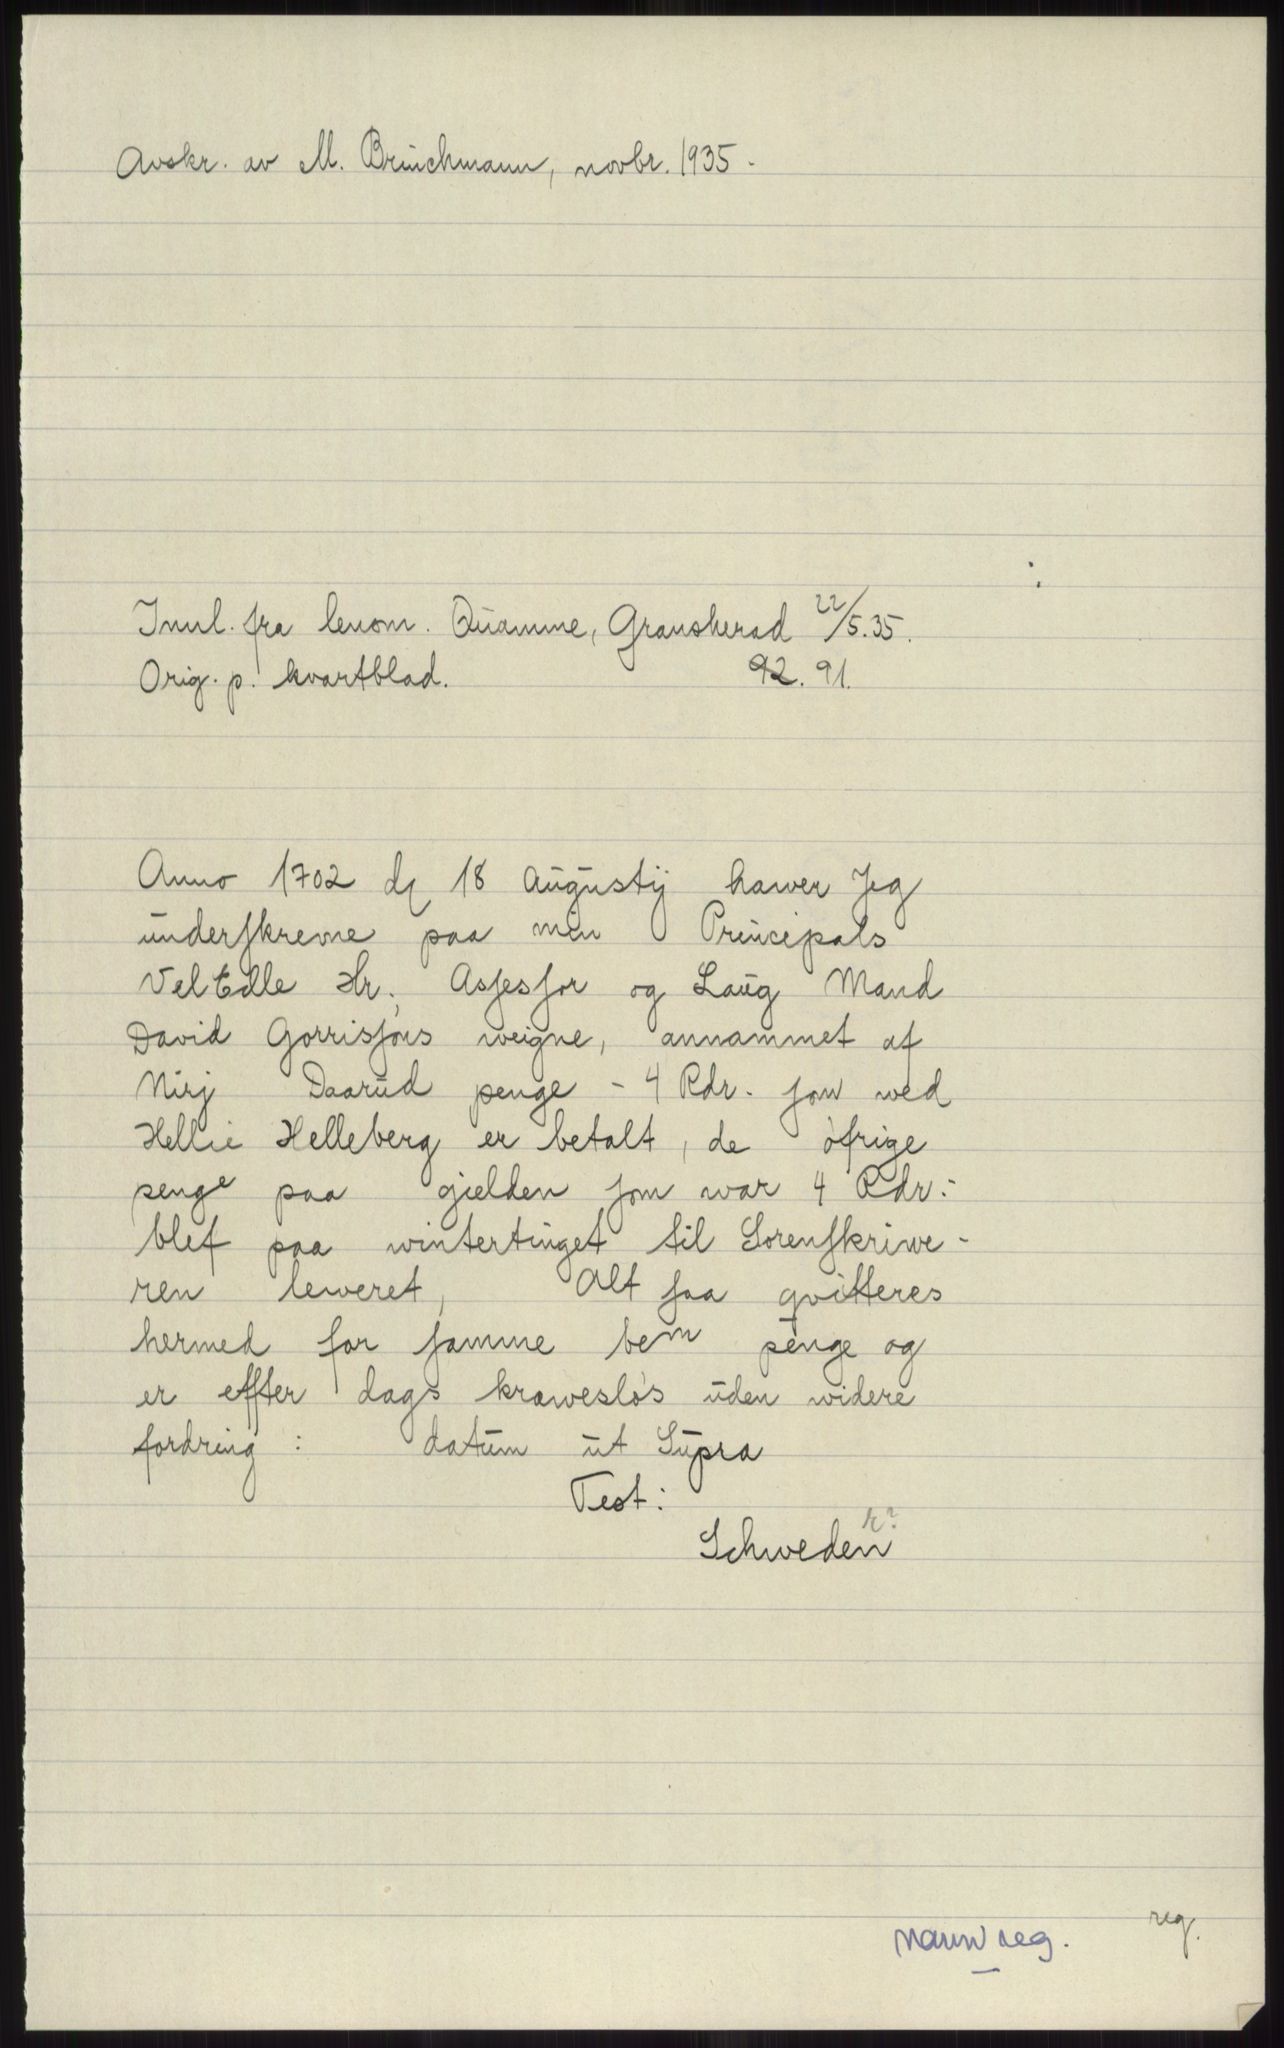 Avskr. av M. Brinchmann, novbr. 1935.
Innl. fra lensm. Quamme, Gransherad 22/5.35.
Orig. p. kvartblad. 92. 91.
Anno 1702 d 18 Augustij hawer Jeg
underskrevne paa min Principals
VelEdle Hr. Assessor og Laug Mand
David Gorrissons weigne, annammet af
Nirj Daarud penge - 4 Rdr. som wed
Hellie Helleberg er betalt, de öfrige
penge paa gjelden som war 4 Rdr:
blef paa wintertinget til Sorenskriwe-
ren leweret, Alt saa qvitteres
hermed for samme bem penge og
er effter dags krawesløs uden widere
fordring: datum ut Supra
Test:
Schweden r?
navnreg. reg.